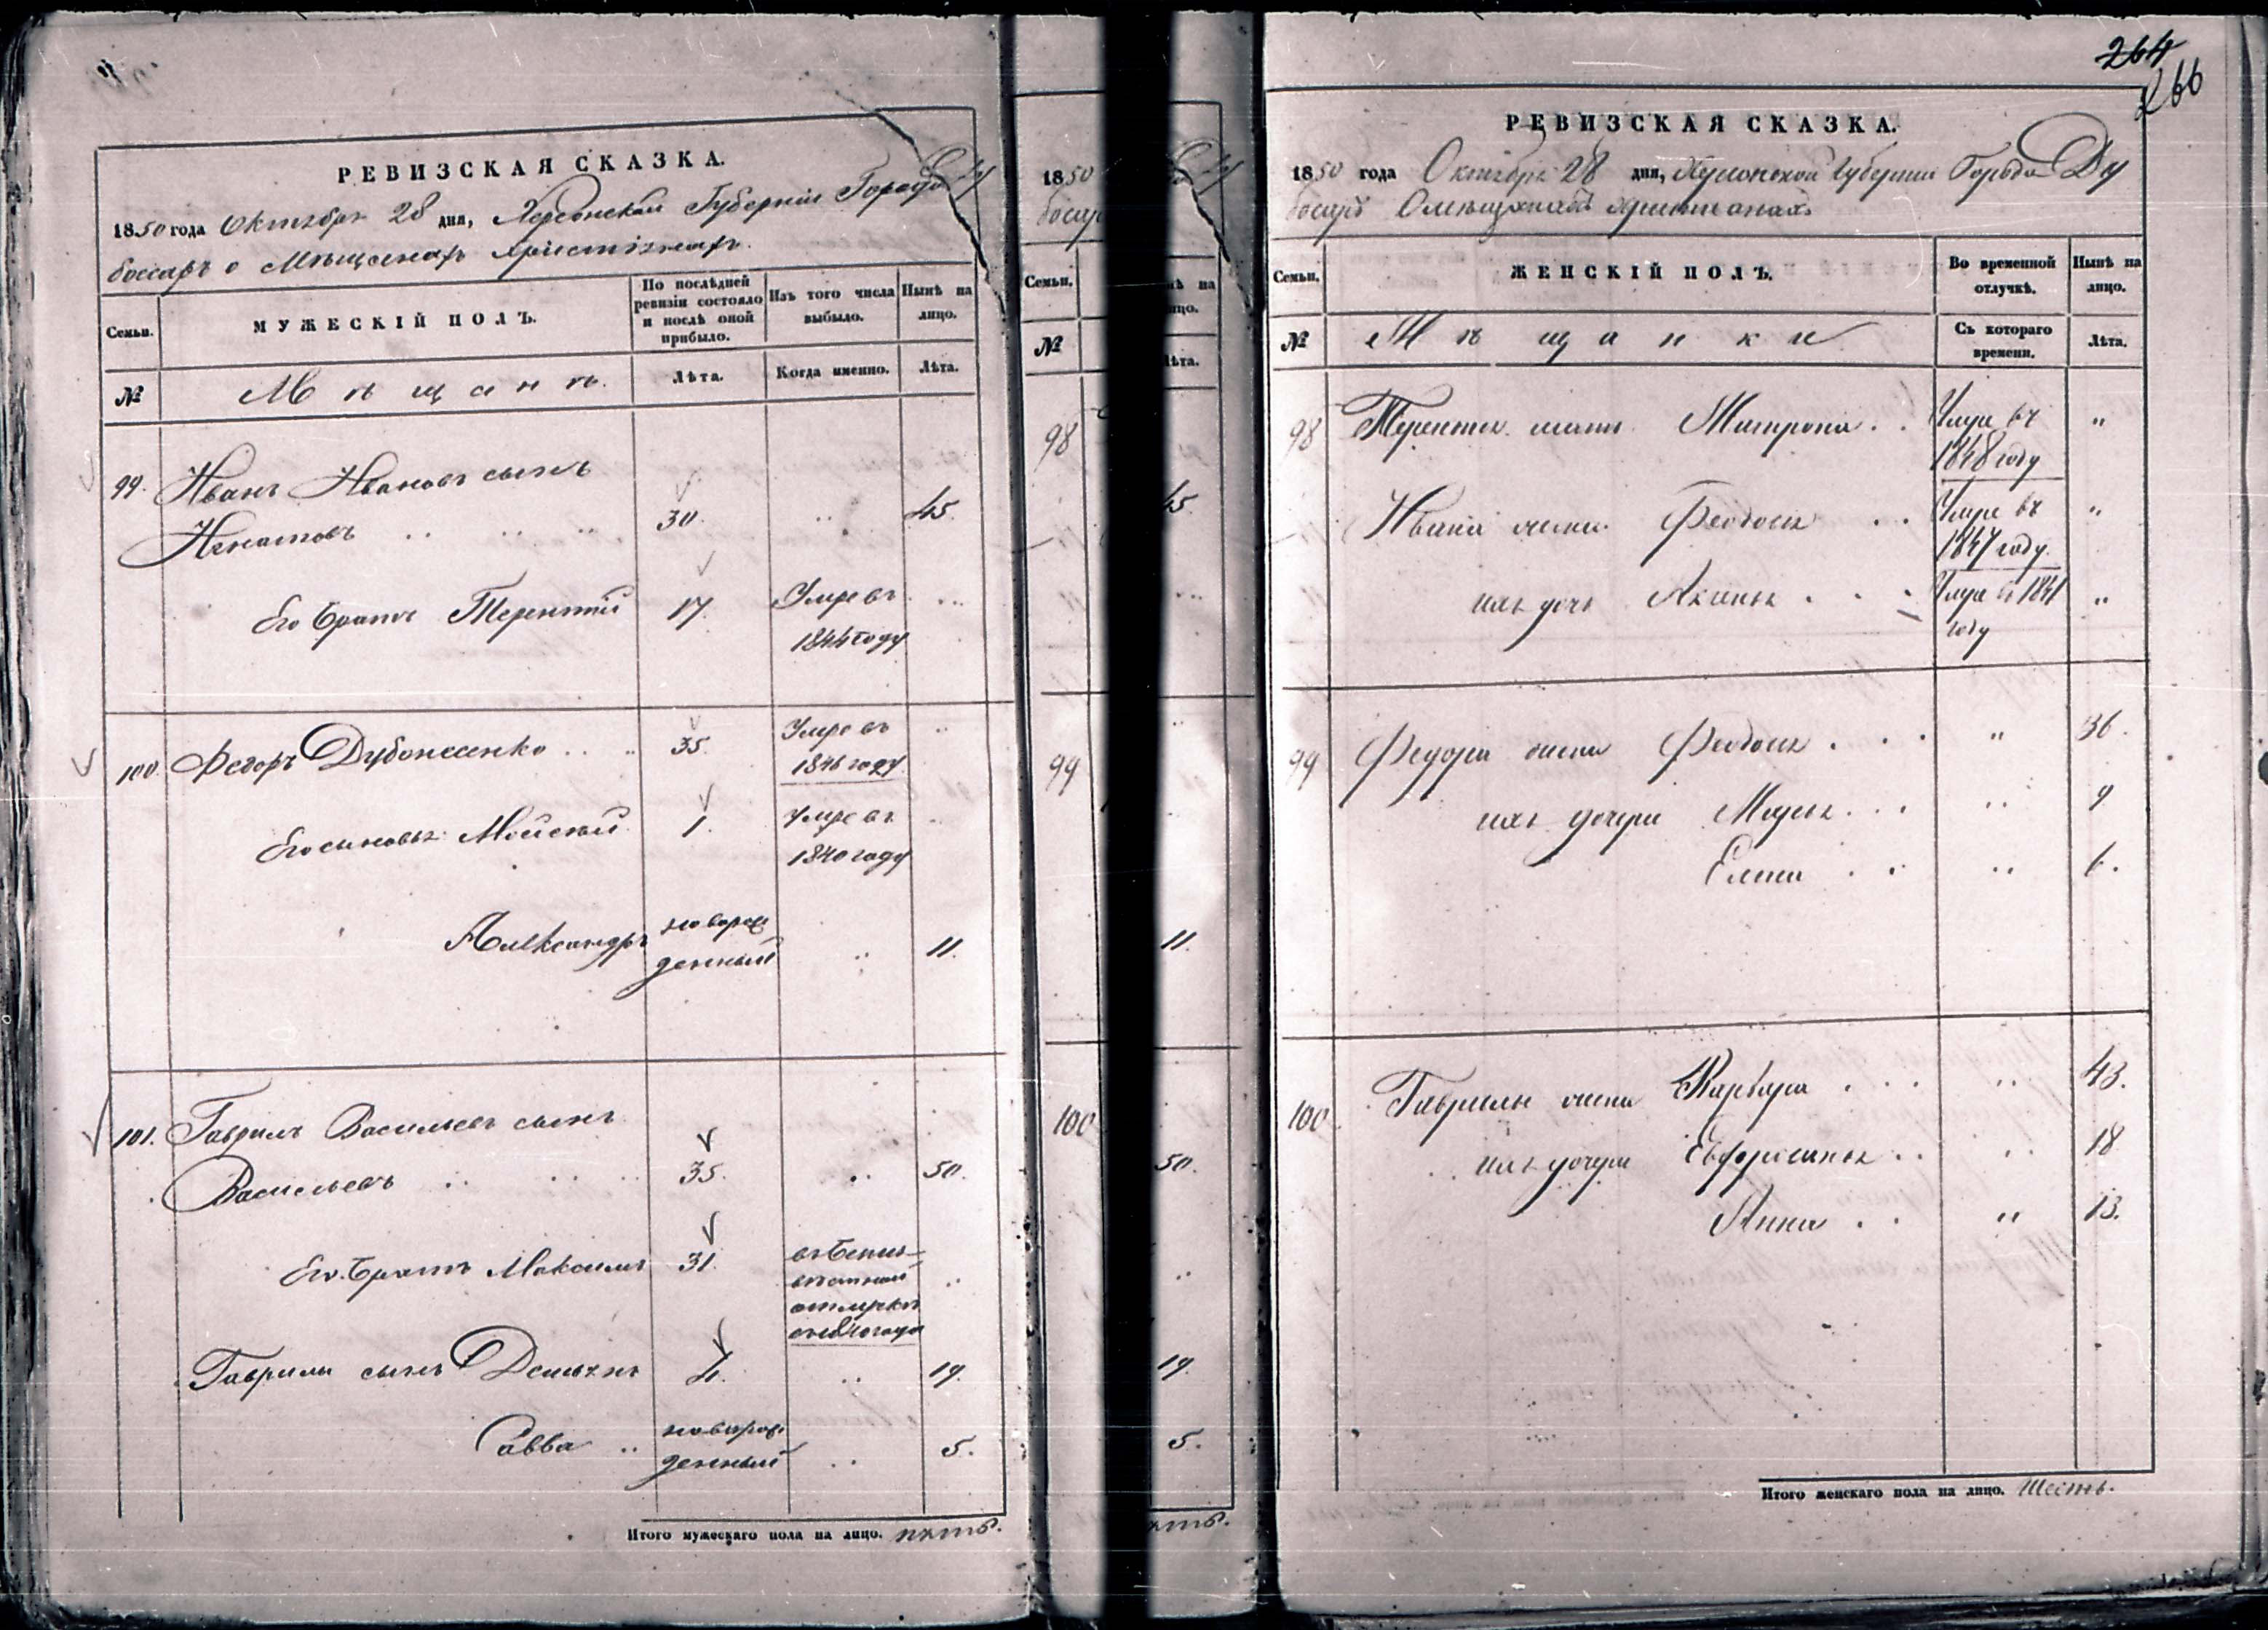 РЕВИЗСКАЯ СКАЗКА.
1850 года Октября 28 дня, Херсонской Губерніи Города Ду
боссаръ о Мѣщанахъ христіянахъ.
Семьи.
МУЖЕСКІЙ ПОЛЪ.
По послѣдней ревизіи состояло и послѣ оной прибыло.
Изъ того числа выбыло.
Нынѣ на лицо.
№
Мѣщане
Лѣта.
Когда именно.
Лѣта.
99. Иванъ Ивановъ сынъ
Игнатовъ 30. 45.
Его братъ Терентій 17. Умре въ
1844 году
100. Федоръ 35. Умре въ
1846 году
Его сыновья Мойсей 1. Умре въ
1840 году
Александръ новорож
денный 11.
101. Гаврилъ Васильевъ сынъ
Васильевъ 35. 50.
Его братъ Максимъ 31. въ безъ-
вѣстной
отлучкѣ
съ 1840 года
Гаврилы сынъ 4. 19.
Савва новорож
денный 5.
Итого мужескаго пола на лицо. пять.
1850
босар
Семьи.
№
98
99
100
нѣ на
ицо.
ѣта.
45.
11.
50.
19.
5.
ять.
264
266
РЕВИЗСКАЯ СКАЗКА.
1850 года Октября 28 дня, Херсонской Губерніи Города Ду
босаръ О мѣщанахъ христіанахъ
Семьи.
ЖЕНСКІЙ ПОЛЪ.
Во временной отлучкѣ.
Нынѣ на лицо.
№
Мѣщанки
Съ котораго времени.
Лѣта.
98 Терентія мать Матрона Умре въ "
1848 году
Ивана жена Феодосія Умре въ "
1847 году.
ихъ дочь Аксинья Умре въ 1841 "
году
99 Федора жена Феодосія " 36.
ихъ дочери Марья " 9
Елена " 6.
100. Гаврилы жена Варвара " 43.
ихъ дочери Евфросинья " 18
Анна " 13.
Итого женскаго пола на лицо. Шесть.